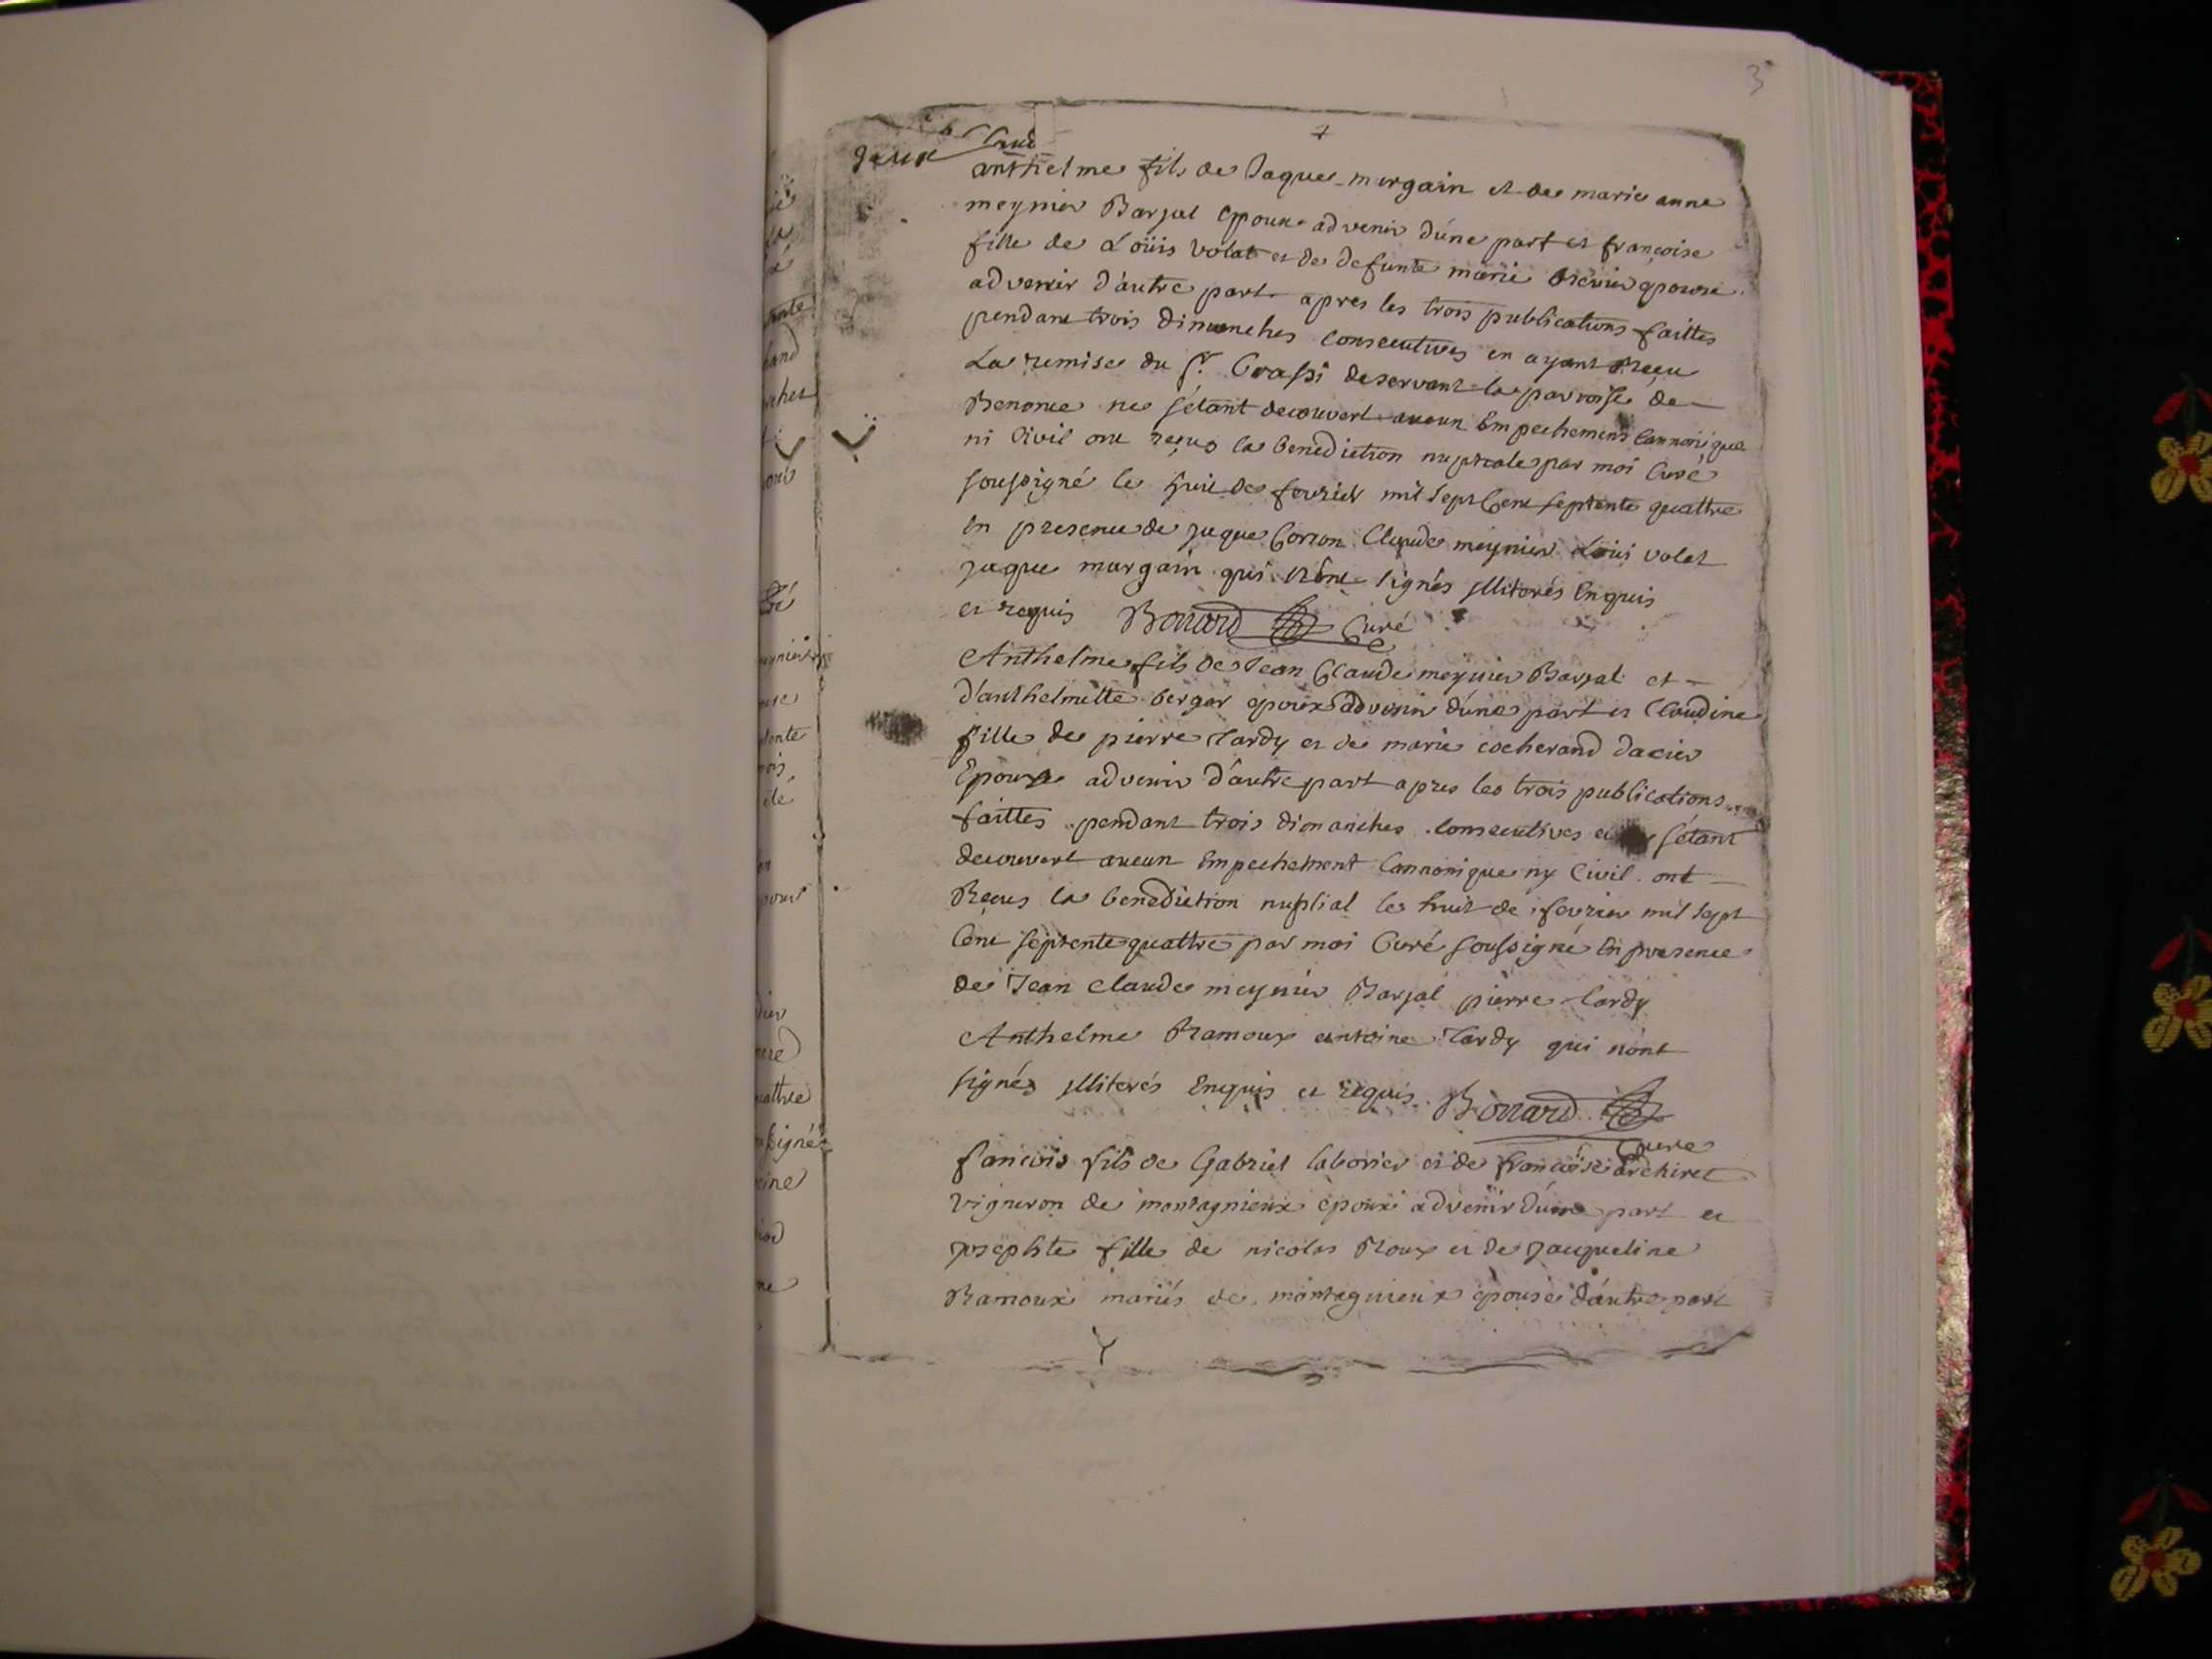 3
7
anthelme fils de Jaque margain et de marie anne
meynier Barjal epoux advenir d'une part et françoise
fille de Loüis Volat et de defunte marie epouse
advenir d'autre part apres les trois publications faittes
pendant trois dimanches consecutives en ayant Reçu
La remise du Sr. Grassi deservant la parroisse de
Benonce ne s'etant decouvert aucun Empechement Cannonique
ni Civil ont reçus la benediction nuptiale par moi Curé
soussigné le huit de fevrier mil sept Cent septente quattre
En presence de Jaque Corron Claude meynier Loüis volat
Jaque margain qui n'ont signés illiterés Enquis
et requis Bonard Curé
Anthelme fils de Jean Claude meynier Barjal et
d'anthelmette berger epoux advenir d'une part et Claudine
fille de pierre Tardy et de marie cocherand dacier
Epouse advenir d'autre part apres les trois publications
faittes pendant trois dimanches consecutives et s'etant
decouvert aucun Empechement Cannonique ny Civil ont
Reçus la benediction nuptial le huit de fevrier mil sept
Cent septente quattre par moi Curé soussigné En presence
de Jean Claude meynier Barjal pierre Tardy
Anthelme Ramoux antoine Tardy qui n'ont
signés illiterés Enquis et requis. Bonard
Curé
fancois fils de Gabriel laborier et de francoise archiret
vigneron de montagnieux epoux advenir d'une part et
josephte fille de nicolas Roux et de Jacqueline
Ramoux mariés de montagnieux epouse d'autre part